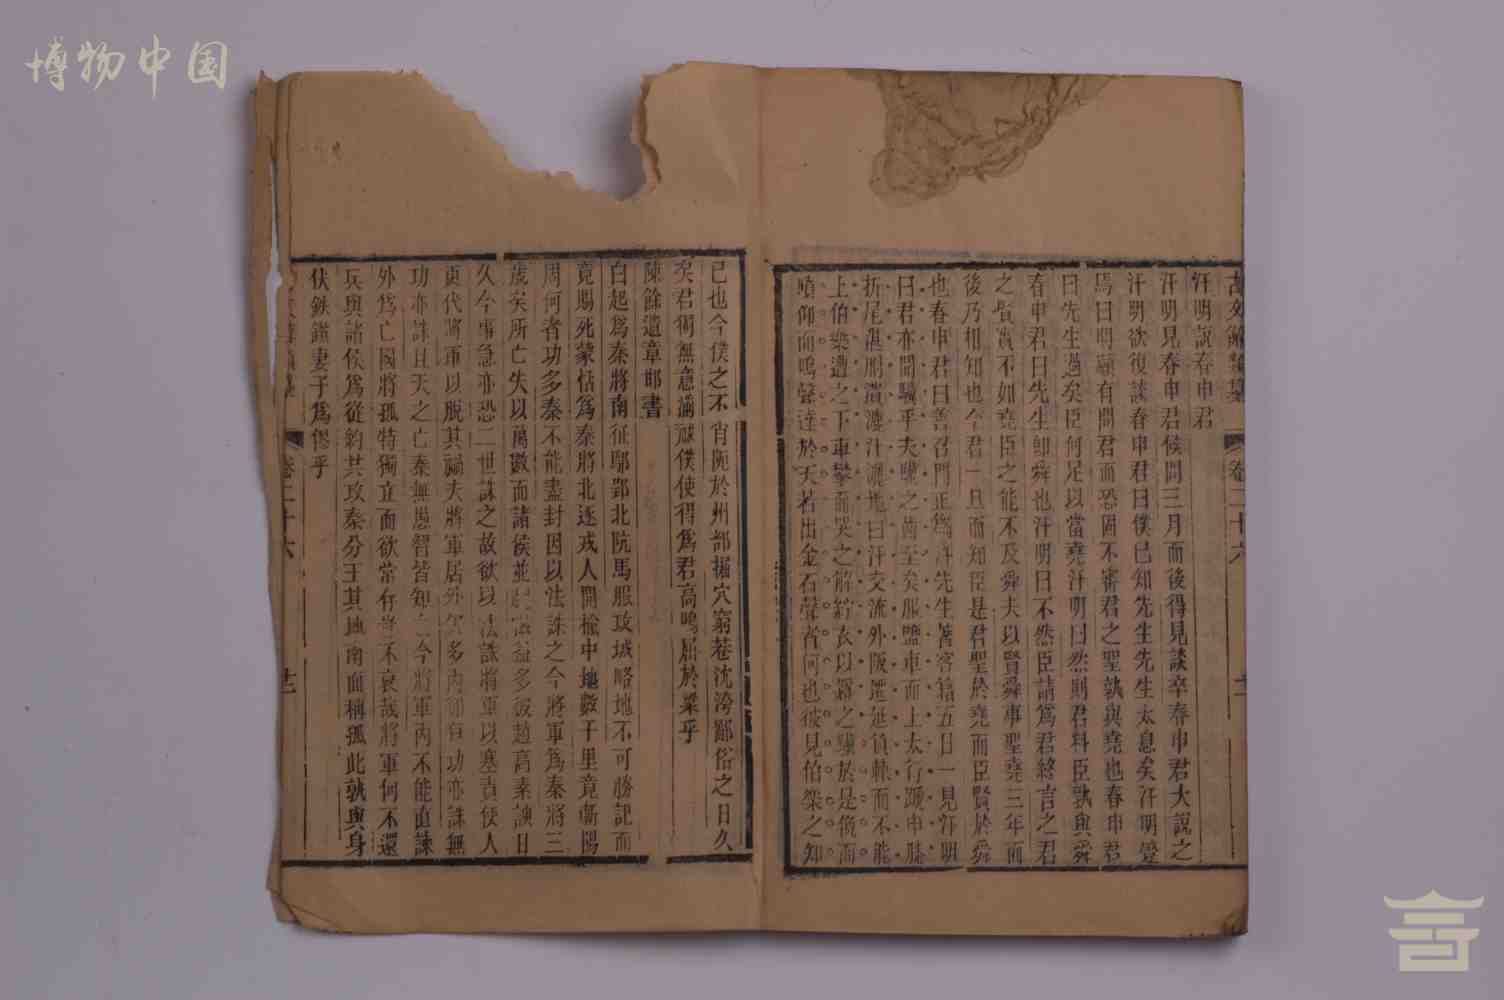 博物中国
古文辭類纂 卷二十六 十二
汗明說春申君
汗明見春申君候問三月而後得見談卒春申君大說之
汗明欲復談春申君曰僕已知先生先生太息矣汗明蹵
焉曰明願有問君而恐固不審君之聖孰與堯也春申君
曰先生過矣臣何足以當堯汗明曰然則君料臣孰與舜
春申君曰先生卽舜也汗明曰不然臣請爲君終言之君
之賢實不如堯臣之能不及舜夫以賢舜事聖堯三年而
後乃相知也今君一旦而知臣是君聖於堯而臣賢於舜
也春申君曰善召門正爲汗先生著客籍五日一見汗明
曰君亦聞驥乎夫驥之齒至矣服鹽車而上太行蹏申膝
折尾湛胕潰漉汁灑地白汗交流外阪遷延負棘而不能
上伯樂遭之下車攀而哭之解紵衣以羃之驥於是俛而
噴仰而鳴聲達於天若出金石聲者何也彼見伯樂之知
己也今僕之不肖阨於州部掘穴窮巷沈洿鄙俗之日久
矣君獨無意湔祓僕使得爲君高鳴屈於梁乎
陳餘遺章邯書
白起爲秦將南征鄢郢北阬馬服攻城略地不可勝記而
竟賜死蒙恬爲秦將北逐戎人開楡中地數千里竟斬陽
周何者功多秦不能盡封因以法誅之今將軍爲秦將三
歲矣所亡失以萬數而諸侯並起滋益多彼趙高素諛日
久今事急亦恐二世誅之故欲以法誅將軍以塞責使人
更代將軍以脫其禍夫將軍居外久多內郤有功亦誅無
功亦誅且天之亡秦無愚智皆知之今將軍內不能直諫
外爲亡國將孤特獨立而欲常存豈不哀哉將軍何不還
兵與諸侯爲從約共攻秦分王其地南面稱孤此孰與身
伏鈇鑕妻子爲僇乎
卷二十六 十二